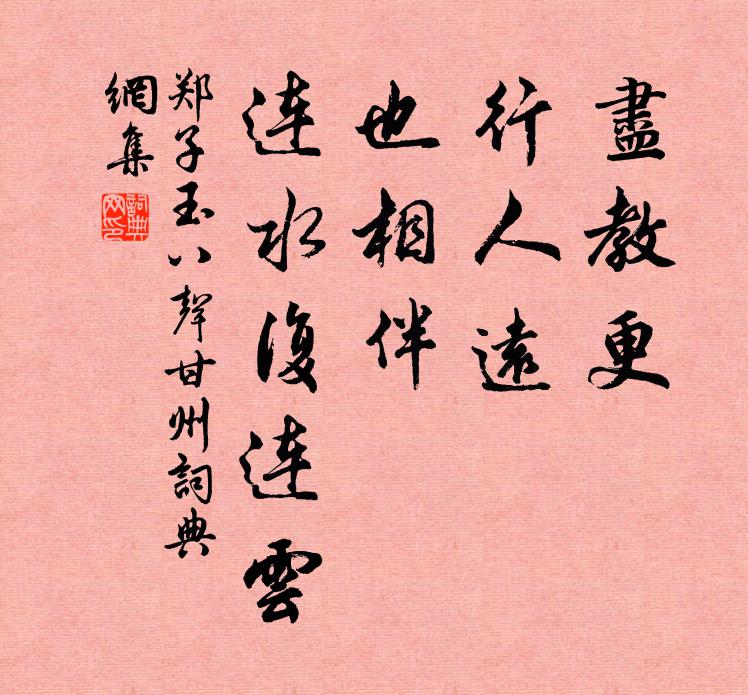 盡教更
行人遠
也相伴
連水復連雲
郑子玉八聲甘州詞典
網集
詞典
网印